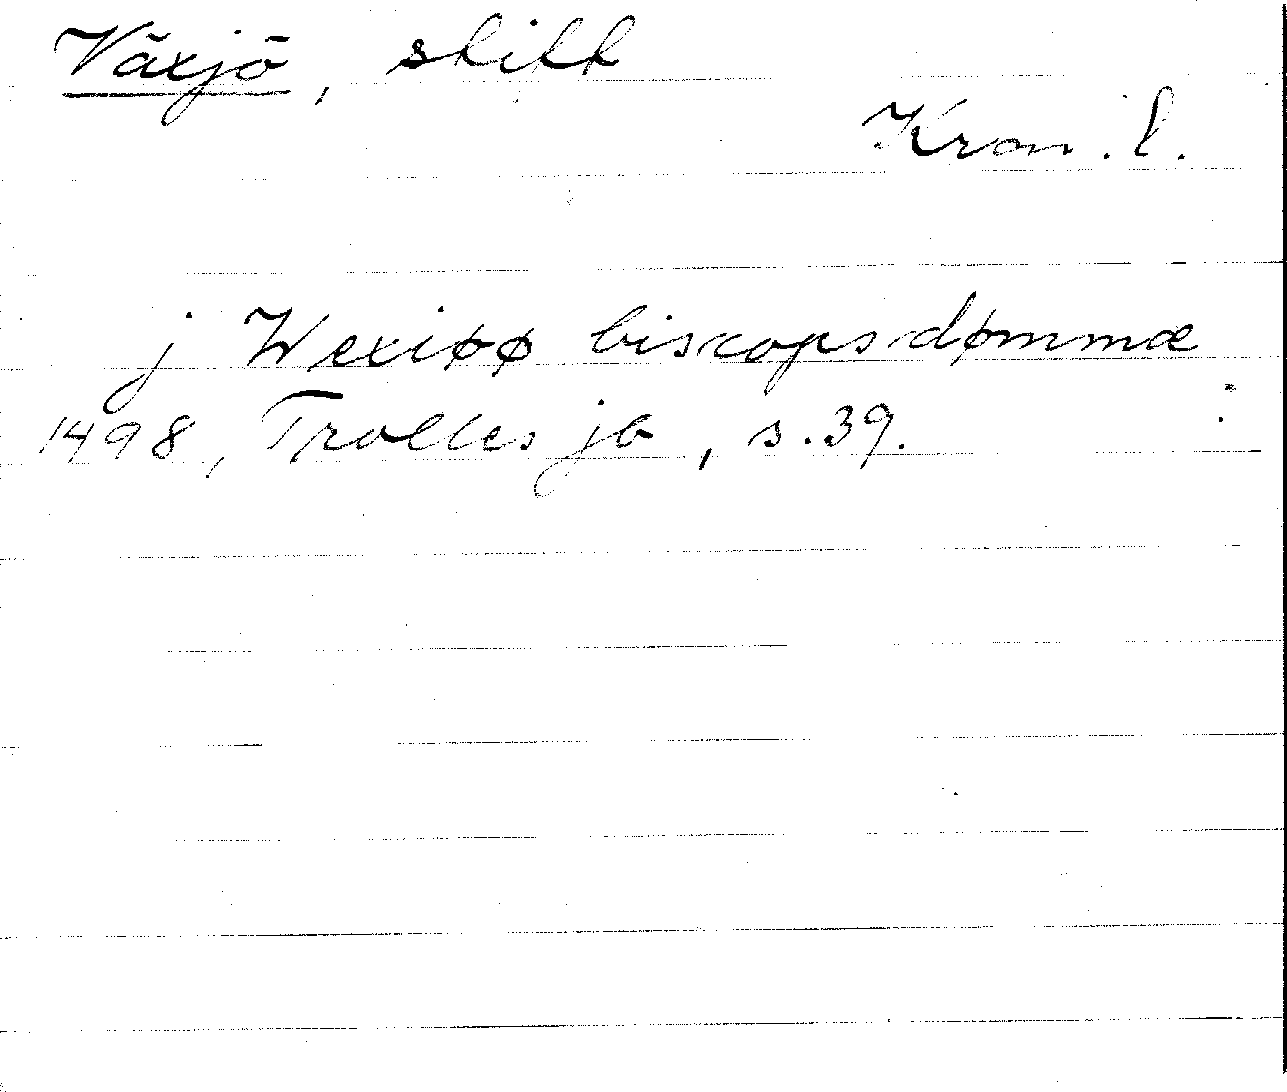 Växjö, stift
Kron. l.
j Wexiøø biscopsdømmæ
1498, Trolles jb, s. 39.